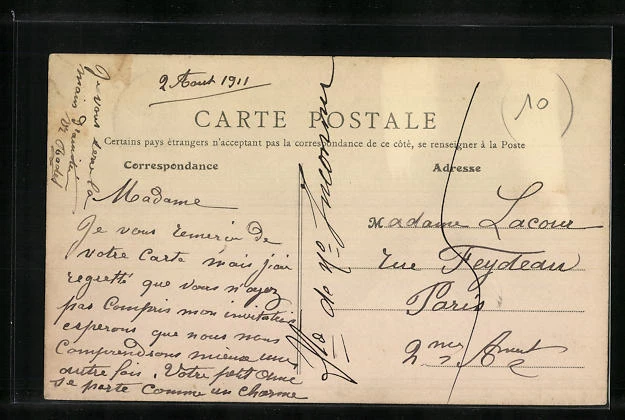 2 Aout 1911
10
CARTE POSTALE
Certains pays étrangers n'acceptant pas la correspondance de ce côté, se renseigner à la Poste
Correspondance
Adresse
Madame
Je vous remercie de
votre Carte mais j'ai
regretté que vous n'ayez
pas Compris mon invitation
esperons que nous nous
Comprendrons mieux une
autre fois. Votre petit
se porte Comme un charme
Je vous serre la
main
Madame Lacour
rue Feydeau
Paris
2me Arr